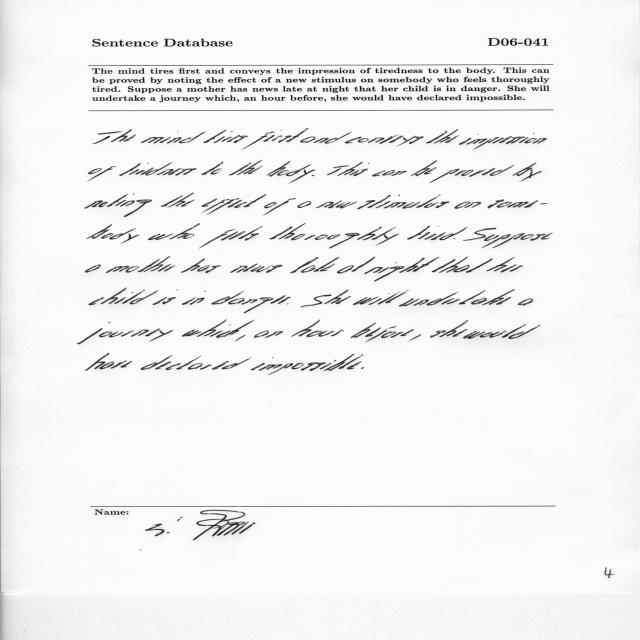 Sentence Database D06-041
The mind tires first and conveys the impression of tiredness to the body. This can
be proved by noting the effect of a new stimulus on somebody who feels thoroughly
tired. Suppose a mother has news late at night that her child is in danger. She will
undertake a journey which, an hour before, she would have declared impossible.
The mind tires first and conveys the impression
of tiredness to the body. This can be proved by
noting the effect of a new stimulus on some-
body who feels thoroughly tired. Suppose
a mother has news late at night that her
child is in danger. She will undertake a
journey which, an hour before, she would
have declared impossible.
Name:
4